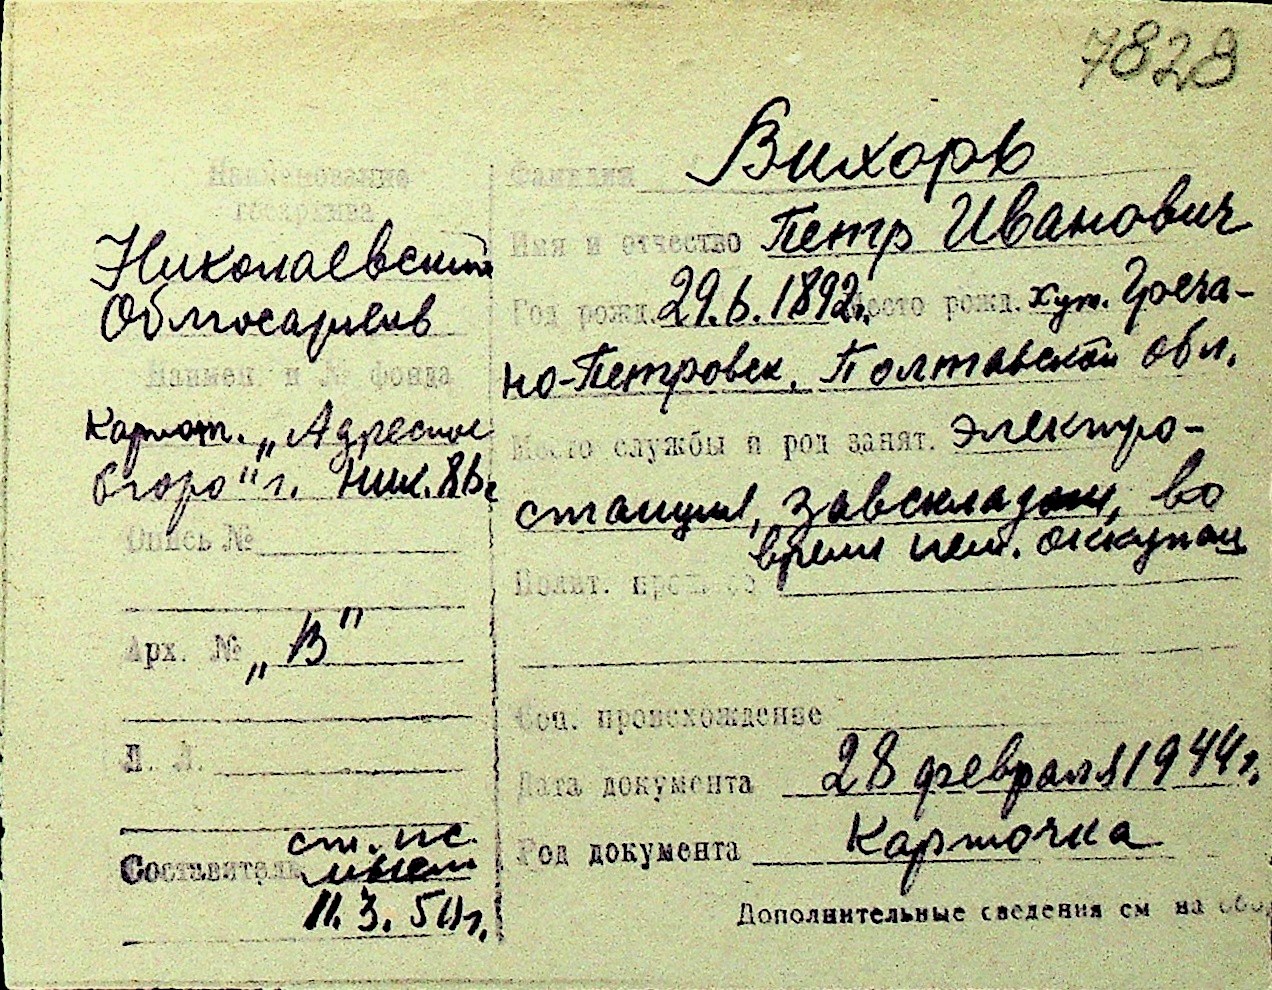 7828
Наименование
госархива
Николаевский
Облгосархив
Наимен. и № фонда
Картот. „Адресное
бюро" г. Ник.
Опись №
Арх. № „В"
Л. Л.
Составитель ст. н.с.
11.3.50 г.
Фамилия Вихорь
Имя и отчество Петр Иванович
Год рожд. 29.6.1892 г. Место рожд. хут. Греча-
но-Петровск. Полтавской обл.
Место службы и род занят. электро-
станция, завскладом, во
время нем. оккупац.
Полит. прошлое
Соц. происхождение
Дата документа 28 февраля 1944 г.
Род документа Карточка
Дополнительные сведения см на обор